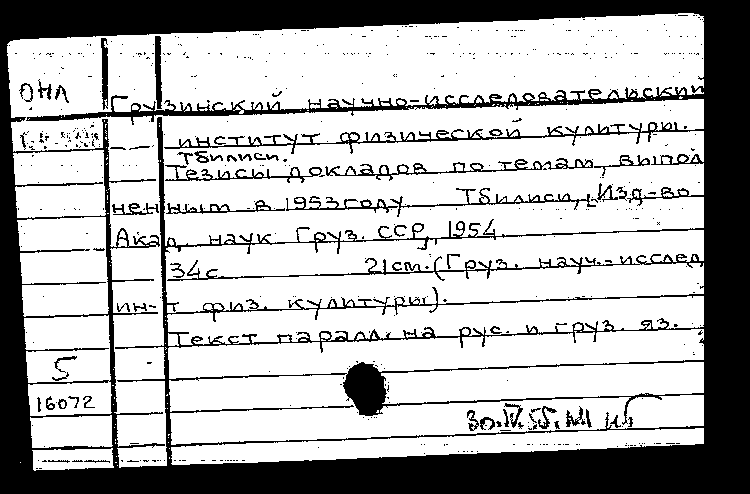 ОНЛ
Грузинский научно-исследовательский
институт физической культуры.
Тбилиси.
Тезисы докладов по темам, выпол
ненным в 1953 году Тбилиси, [Изд-во
Акад. наук Груз. ССР], 1954.
34с. 21см. (Груз. науч.-исслед
ин-т физ. культуры).
Текст паралл. на рус. и груз. яз.
5
16072
30.IV.55.